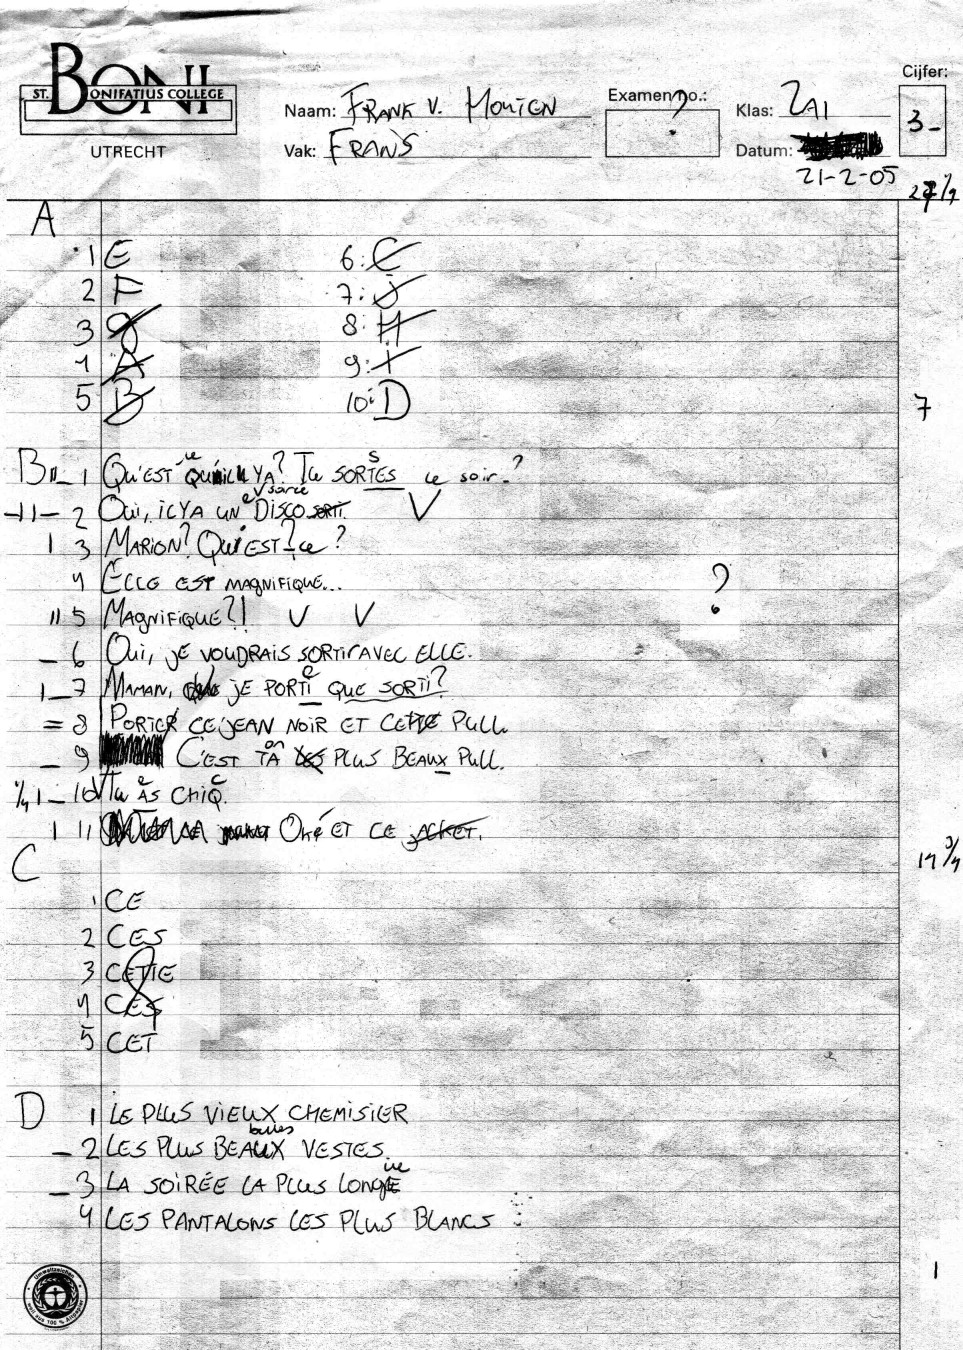 BONI
ST. BONIFATIUS COLLEGE
UTRECHT
Naam: FRANK V. HOUTEN
Examen no.: ?
Klas: 2A1
Cijfer: 3-
Vak: FRANS
Datum:
21-2-05
A
1 E 6: C
2 F 7: J
3 8: H
4 A 9: I
5 B 10: D
7
B 1 QU'EST QU'IL YA? Tu SORTES ce soir?
2 Oui, ILYA UN DISCO
soirée
3 MARION? QUI EST-ce?
4 ELLE EST MAGNIFIQUE...
?
5 MAGNIFIQUE?!
6 Oui, JE VOUDRAIS SORTIR AVEC ELLE.
7 MAMAN, JE PORTI QUE SORTI?
8 PORTER CE JEAN NOIR ET CETTE PULL
9 C'EST TA LES PLUS BEAUX PULL.
on
10 Tu AS CHIQ.
11 OKÉ ET CE JACKET.
14 3/4
C
1 CE
2 CES
3 CETTE
4 CES
5 CET
D 1 LE PLUS VIEUX CHEMISIER
belles
2 LES PLUS BEAUX VESTES.
ue
3 LA SOIRÉE LA PLUS LONGE
4 LES PANTALONS LES PLUS BLANCS
1
Umweltzeichen